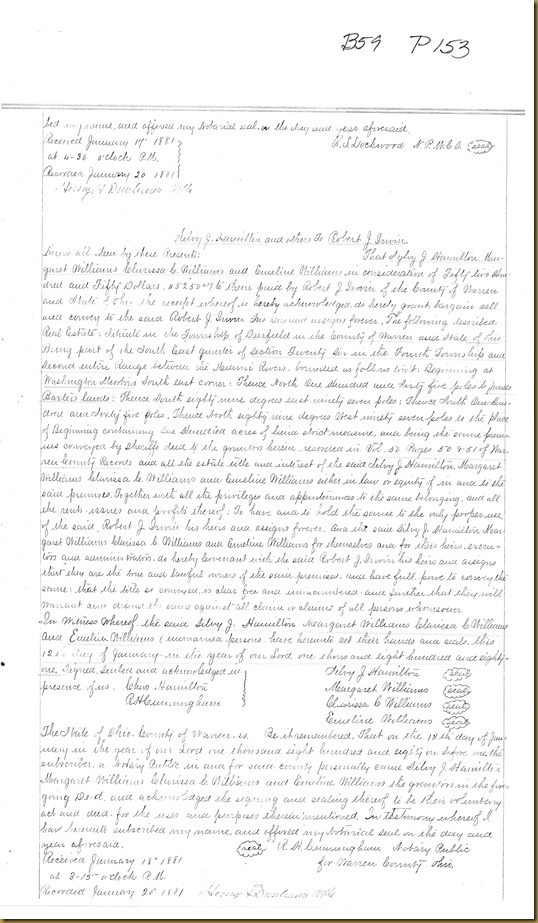 B59 P153
bed my name, and affixed my Notarial seal, on the day and year aforesaid.
Received January 17" 1881
R. S. Lockwood N.P.W.C.O. seal
at 4-30 o'clock P.M.
Recorded January 20 1881
Silvy J. Hamilton and others To Robert J. Irwin
Know all Men by these Presents: That Sylvy J. Hamilton, Mar-
garet Williams Clarissa C. Williams and Emeline Williams in consideration of Fifty two Hun-
dred and Fifty Dollars to them paid by Robert J. Irwin of the County of Warren
and State of Ohio the receipt whereof is hereby acknowledged, do hereby grant, bargain sell
and convey to the said Robert J. Irwin his heirs and assigns forever, The following described
Real Estate: Situate in the Township of Deerfield in the County of Warren and State of Ohio
Being part of the South East quarter of Section Twenty Six in the Fourth Township and
Second entire Range between the Miami Rivers. bounded as follows towit: Beginning at
Washington South east corner: Thence North One Hundred and Sixty five poles to James
lands: Thence South eighty nine degrees east ninety seven poles: Thence South One Hun-
dred and Sixty five poles, Thence North eighty nine degrees West ninety seven poles to the place
of Beginning containing One Hundred acres of land strict measure, and being the same prem-
ises conveyed by Sheriffs deed to the grantors herein. recorded in Vol. 50 Pages 50 & 51 of War-
ren County Records and all the estate title and interest of the said Silvy J. Hamilton, Margaret
Williams Clarissa C. Williams and Emeline Williams either in law or equity of in and to the
said premises. Together with all the privileges and appurtenances to the same belonging, and all
the rents issues and profits thereof: To have and to hold the same to the only proper use
of the said Robert J. Irwin his heirs and assigns forever. And the said Silvy J. Hamilton Mar-
garet Williams Clarissa C Williams and Emeline Williams for themselves and for their heirs, execu-
tors and administrators. do hereby Covenant with the said Robert J. Irwin his heirs and assigns
that they are the true and lawful owners of the said premises. and have full power to convey the
same: that the title so conveyed, is clear free and unincumbered. and further that they will
warrant and defend the same against all claim or claims of all persons whomsoever
In Witness Whereof, the said Silvy J. Hamilton Margaret Williams Clarissa C Williams
and Emeline Williams (unmarried persons. have hereunto set their hands and seals, this
12th day of January. in the year of our Lord one thous and eight hundred and eighty-
one, Signed, Sealed and acknowledged in
Silvy J Hamilton seal
presence of us. Chas Hamilton
Margaret Williams seal
R H Cunningham
Clarissa C Williams seal
Emeline Williams seal
The State of Ohio. County of Warren. ss. Be it remembered, That on the 12th day of Jan-
uary in the year of our Lord one thousand eight hundred and eighty on before me the
subscriber, a Notary Public in and for said county personally came Silvy J. Hamilton
Margaret Williams Clarissa C. Williams and Emeline Williams the grantors in the fore-
going Deed. and acknowledged the signing and sealing thereof to be their voluntary
act and deed. for the uses and purposes therein mentioned. In testimony whereof, I
have hereunto subscribed my name, and affixed my Notarial seal on the day and
year aforesaid.
seal R. H. Cunningham Notary Public
Received January 18" 1881
for Warren County Ohio.
at 2-15 o'clock P.M.
Recorded January 20" 1881